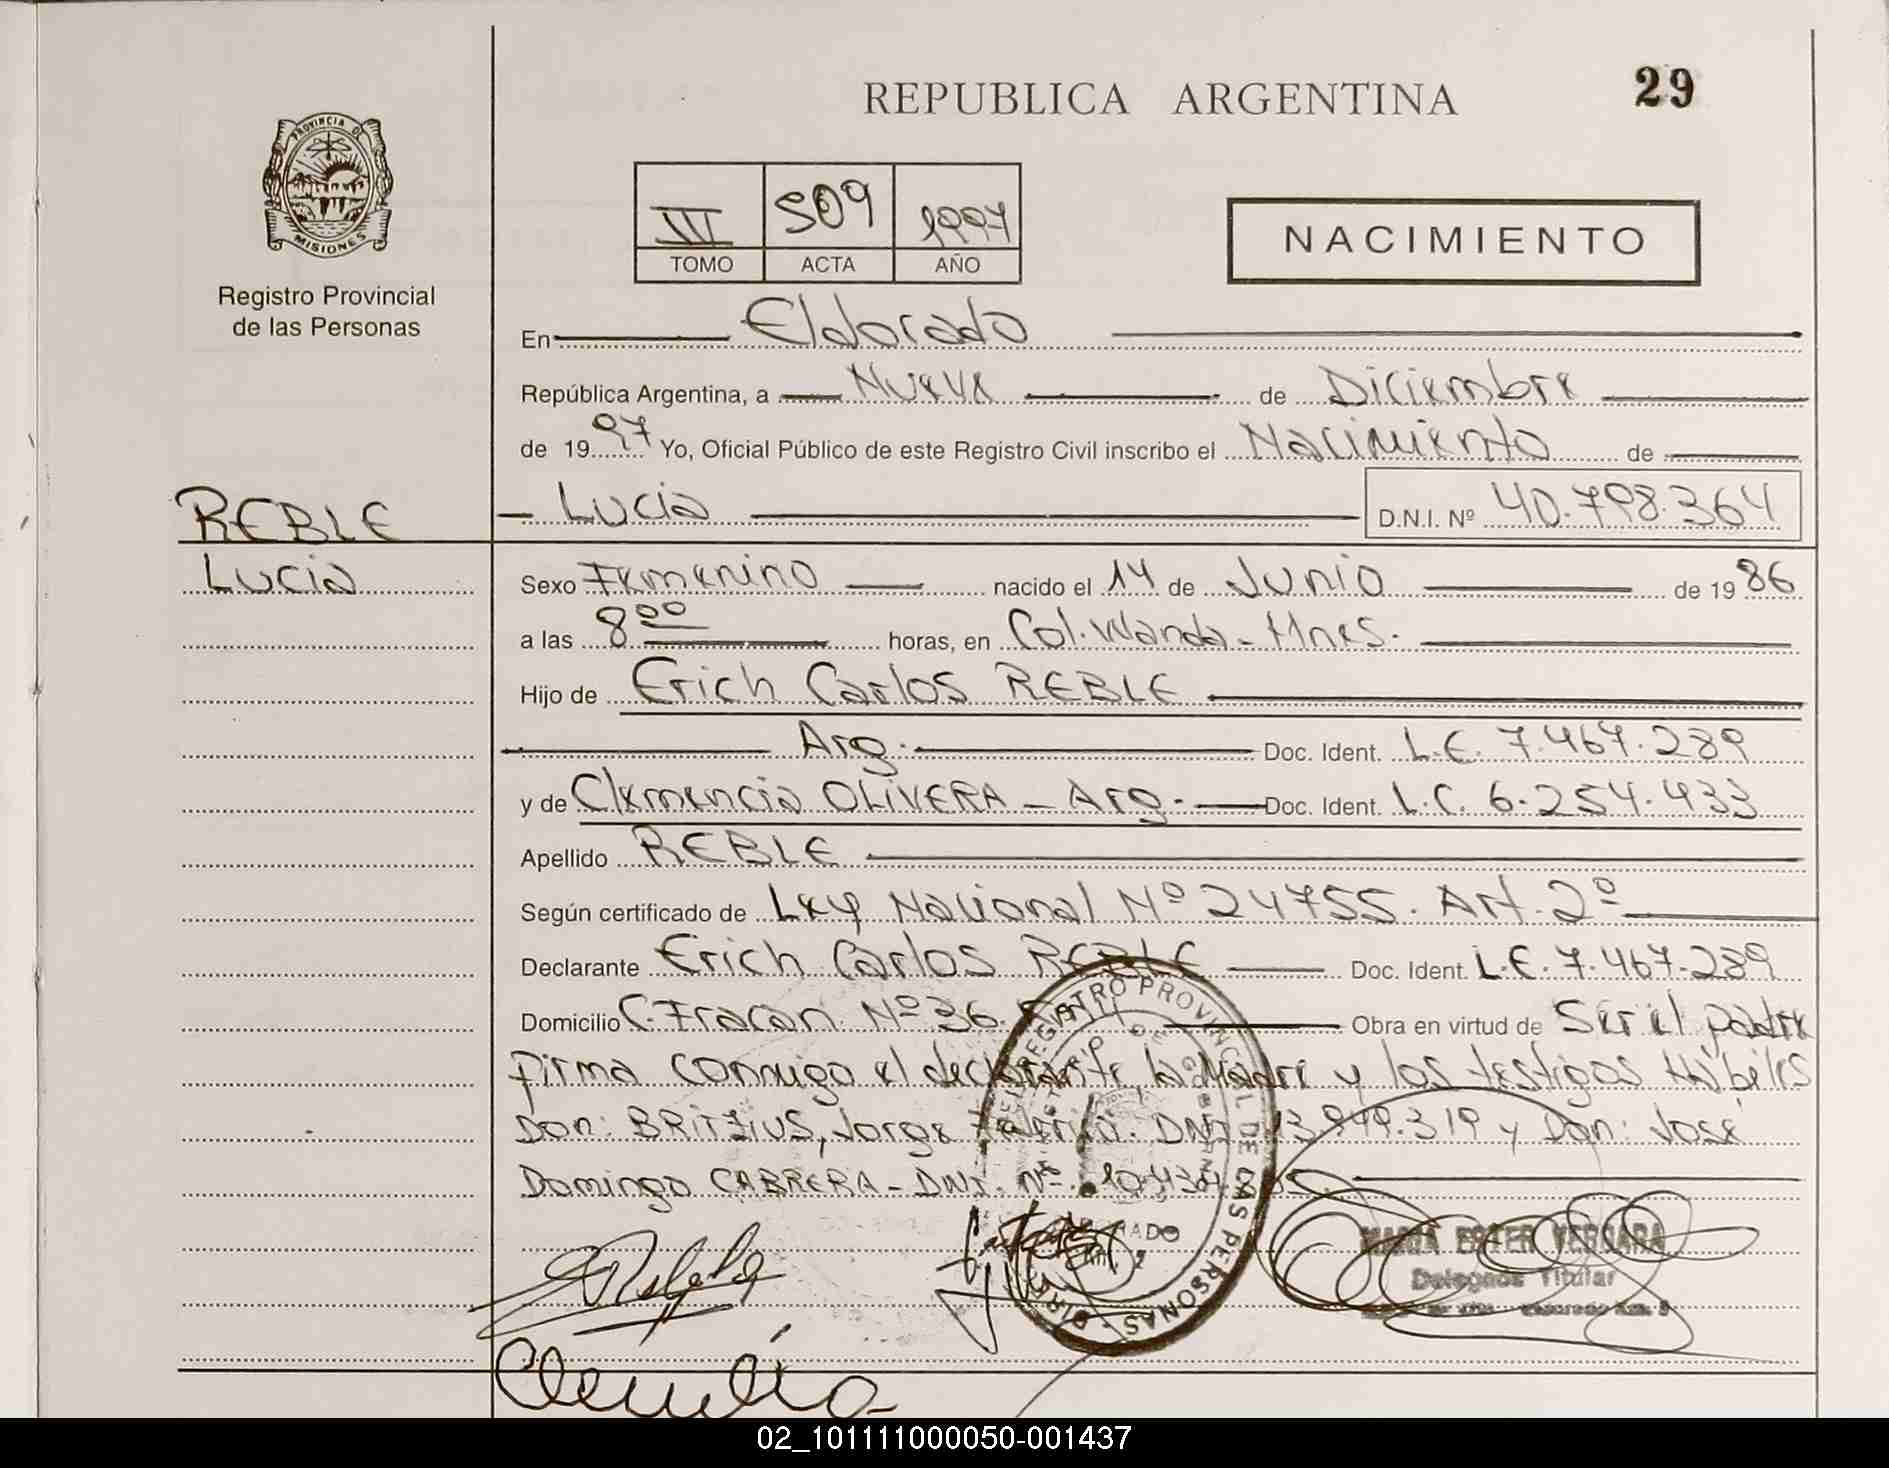 REPUBLICA ARGENTINA
29
PROVINCIA DE
MISIONES
Registro Provincial
de las Personas
III 509 1997
TOMO ACTA AÑO
NACIMIENTO
En Eldorado
República Argentina, a Nueve de Diciembre
de 1997 Yo, Oficial Público de este Registro Civil inscribo el Nacimiento de
REBLE
Lucia
Lucia D.N.I. Nº 40.798.364
Sexo Femenino nacido el 14 de Junio de 1986
a las 8 00 horas, en Col. Wanda - Mnes.
Hijo de Erich Carlos REBLE
Arg. Doc. Ident. L.E. 7.467.289
y de Clemencia OLIVERA - Arg. Doc. Ident. L.C. 6.254.433
Apellido REBLE
Según certificado de Ley Nacional Nº 24755. Art. 2º
Declarante Erich Carlos REBLE Doc. Ident. L.E. 7.467.289
Domicilio C. Fracan Nº 36. Obra en virtud de Ser el padre
firma conmigo el declarante, la Madre y los testigos Hábiles
Don: BRITZIUS, Jorge DNI 13.949.319 y Don: José
Domingo CABRERA - DNI. Nº
DIREC DEL REGISTRO PROVINCIAL DE LAS PERSONAS
MAGDA ESTER VERGARA
Delegada Titular
Eldorado Km. 9
02_101111000050-001437